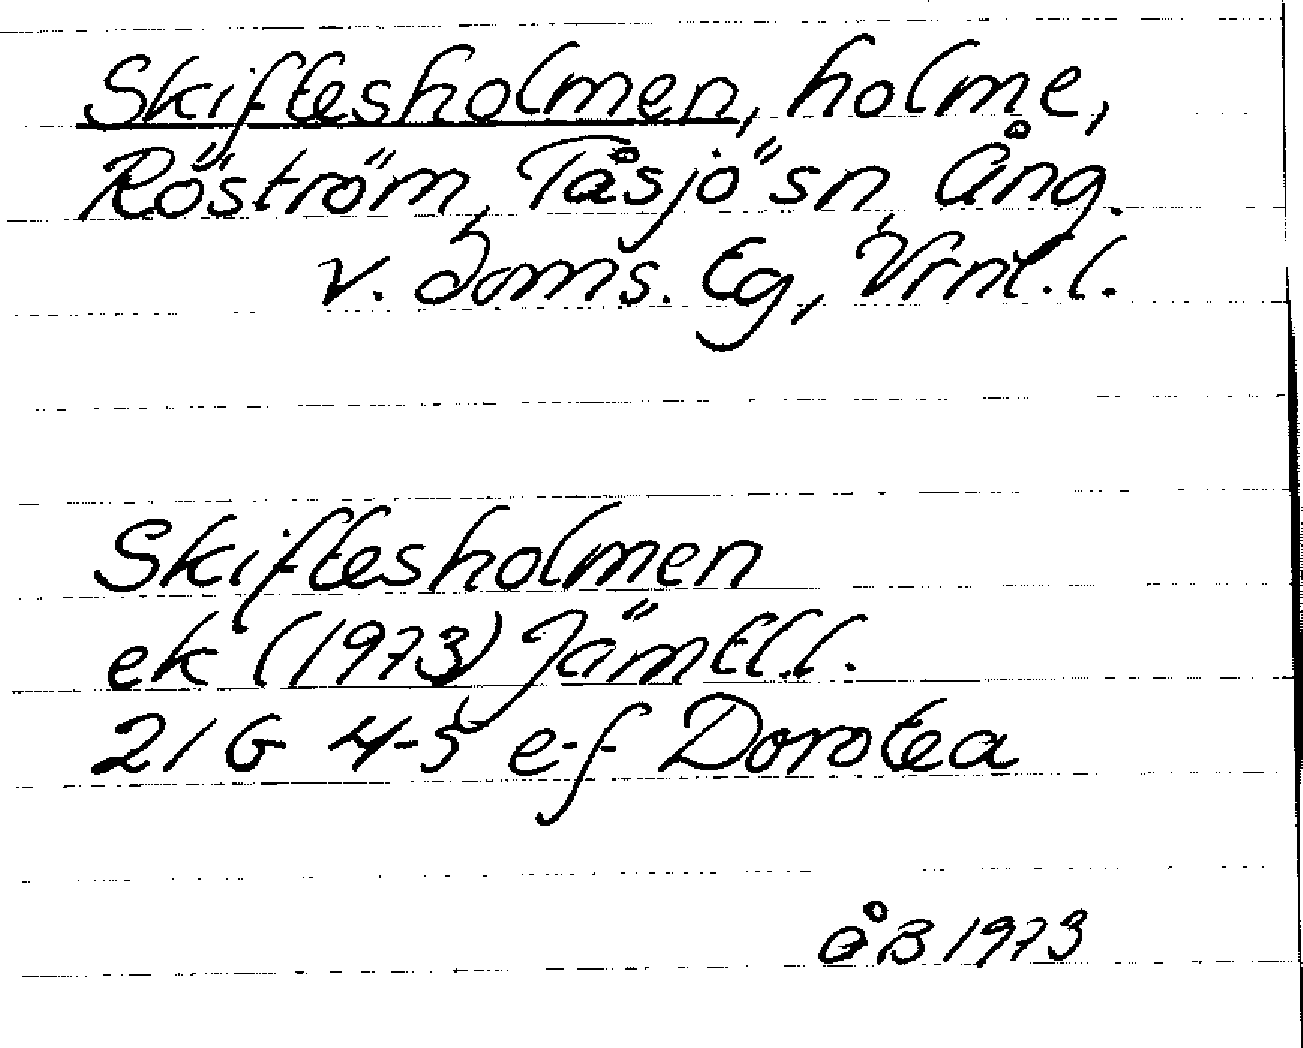 Skiftesholmen, holme,
Röström, Tåsjö sn, Ång.
v. doms. Eg, Vrnl. l.
Skiftesholmen
ek (1973) Jämtl.l.
21 G 4-5 e-f Dorotea
åB 1973